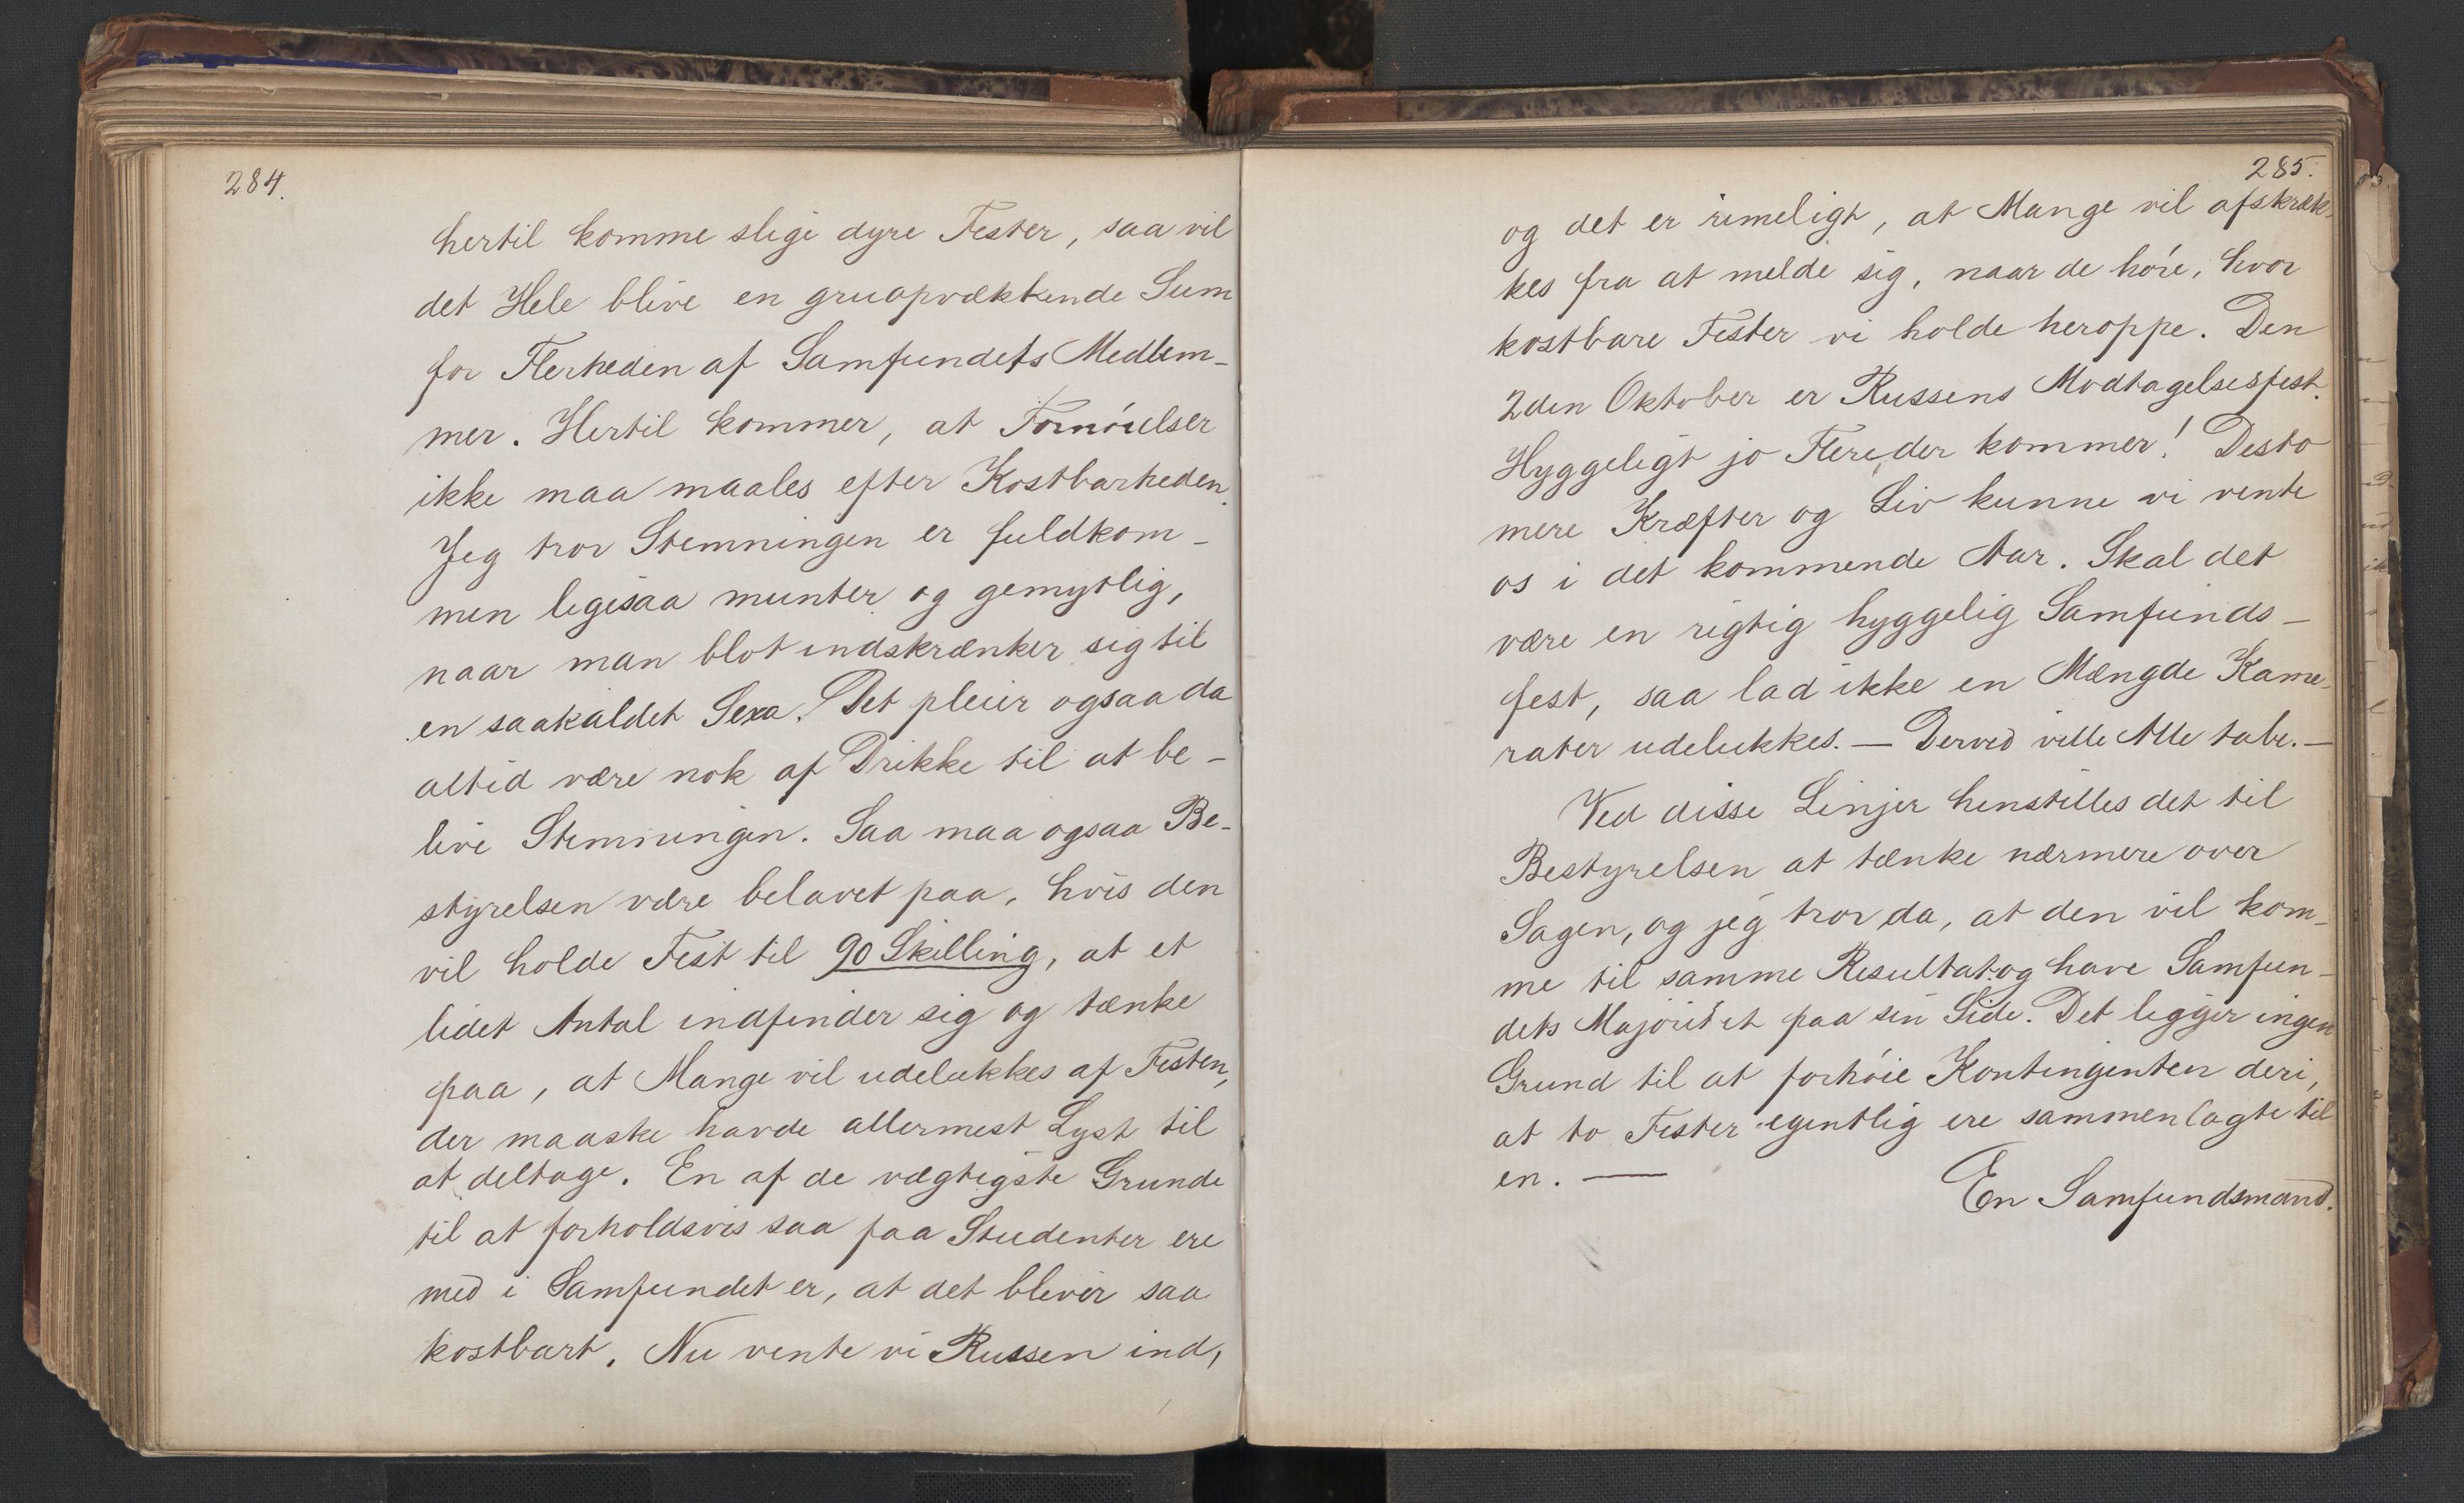 284.
hertil komme slige dyre Fester, saa vil
det Hele blive en gruopvækkende Sum
for Flerheden af Samfundets Medlem-
mer. Hertil kommer, at Fornóielser
ikke maa maales efter Kostbarheden.
Jeg tror Stemningen er fuldkom-
men ligesaa munter og gemytlig,
naar man blot indskrænker sig til
en saakaldet Sexa. Det pleier ogsaa da
altid være nok af Drikke til at be-
live Stemningen. Saa maa ogsaa Be-
styrelsen være belavet paa, hvis den
vil holde Fest til 90 Skilling, at et
lidet Antal indfinder sig og tænke
paa, at Mange vil udelukkes af Festen,
der maaske havde allermest Lyst til
at deltage. En af de vægtigste Grunde
til at forholdsvis saa faa Studenter ere
med i Samfundet er, at det bliver saa
kostbart. Nu vente vi Russen ind,
285.
og det er rimeligt, at Mange vil afskræk-
kes fra at melde sig, naar de hóre, hvor
kostbare Fester vi holde heroppe. Den
2den Oktober er Russens Modtagelsesfest.
Hyggeligt jo Flere der kommer! Desto
mere Kræfter og Liv kunne vi vente
os i det kommende Aar. Skal det
være en rigtig hyggelig Samfunds-
fest, saa lad ikke en Mængde Kame-
rater udelukkes. — Derved ville Alle tabe. —
Ved disse Linjer henstilles det til
Bestyrelsen at tænke nærmere over
Sagen, og jeg tror da, at den vil kom-
me til samme Resultat og have Samfun-
dets Majoritet paa sin Side. Det ligger ingen
Grund til at forhóie Kontingenten deri,
at to Fester egentlig ere sammenlagte til
en. —
En Samfundsmand.